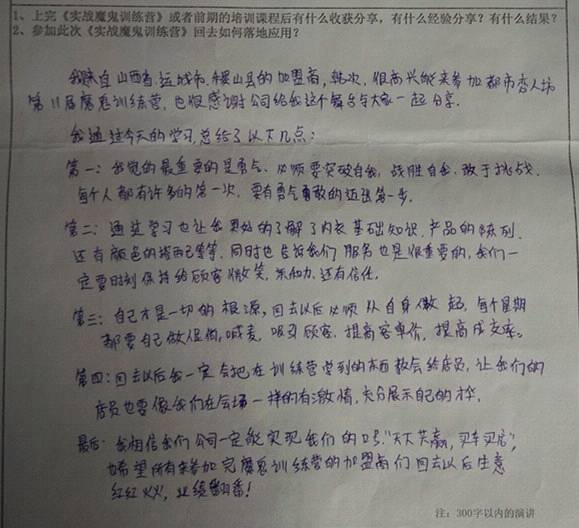 1、上完《实战魔鬼训练营》或者前期的培训课程后有什么收获分享，有什么经验分享？有什么结果？
2、参加此次《实战魔鬼训练营》回去如何落地应用？
我来自山西省运城市稷山县的加盟商，韩次，很高兴能来参加都市杏人坊
第11届魔鬼训练营，也很感谢公司给我这个舞台与大家一起分享.
我通过今天的学习，总结了以下几点：
第一：我觉的最重要的是勇气，必须要突破自我，战胜自我，敢于挑战.
每个人都有许多的第一次，要有勇气勇敢的迈出第一步.
第二：通过学习也让我更好的了解了内衣基础知识，产品的陈列.
还有颜色的搭配等等，同时也告诉我们服务也是很重要的，我们一
定要时刻保持给顾客微笑，亲和力，还有信任.
第三：自己才是一切的根源，回去以后必须从自身做起，每个星期
都要自己做促销，喊麦，吸引顾客，提高客单价，提高成交率.
第四：回去以后我一定会把在训练营学到的东西教会给店员，让我们的
店员也要像我们在会场一样的有激情，充分展示自己的才华.
最后：我相信我们公司一定能实现我们的口号，"天下共赢，买车买房"，
也希望所有来参加完魔鬼训练营的加盟商们回去以后生意
红红火火，业绩翻番！
注：300字以内的演讲